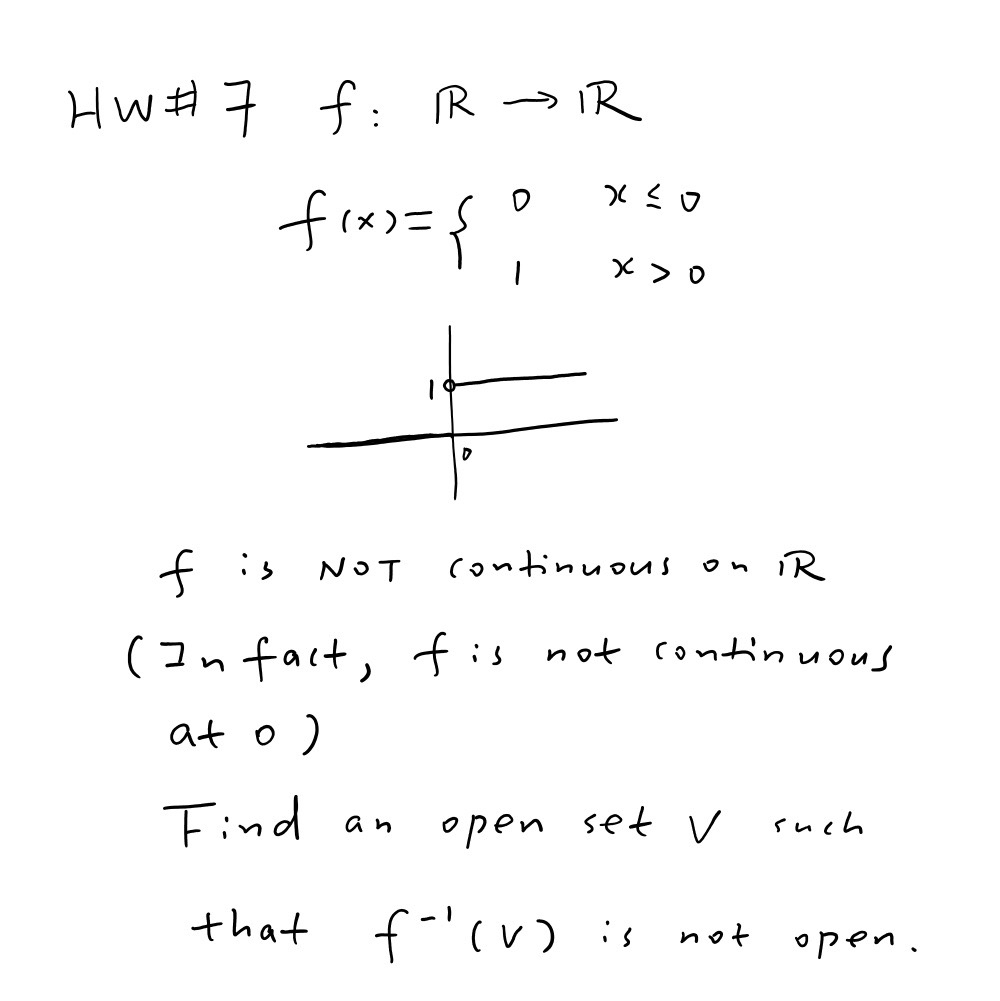 HW# 7 f: ℝ → ℝ
f(x) = { 0 x ≤ 0
1 x > 0
1
0
f is NOT continuous on ℝ
(In fact, f is not continuous
at 0)
Find an open set V such
that f⁻¹(V) is not open.